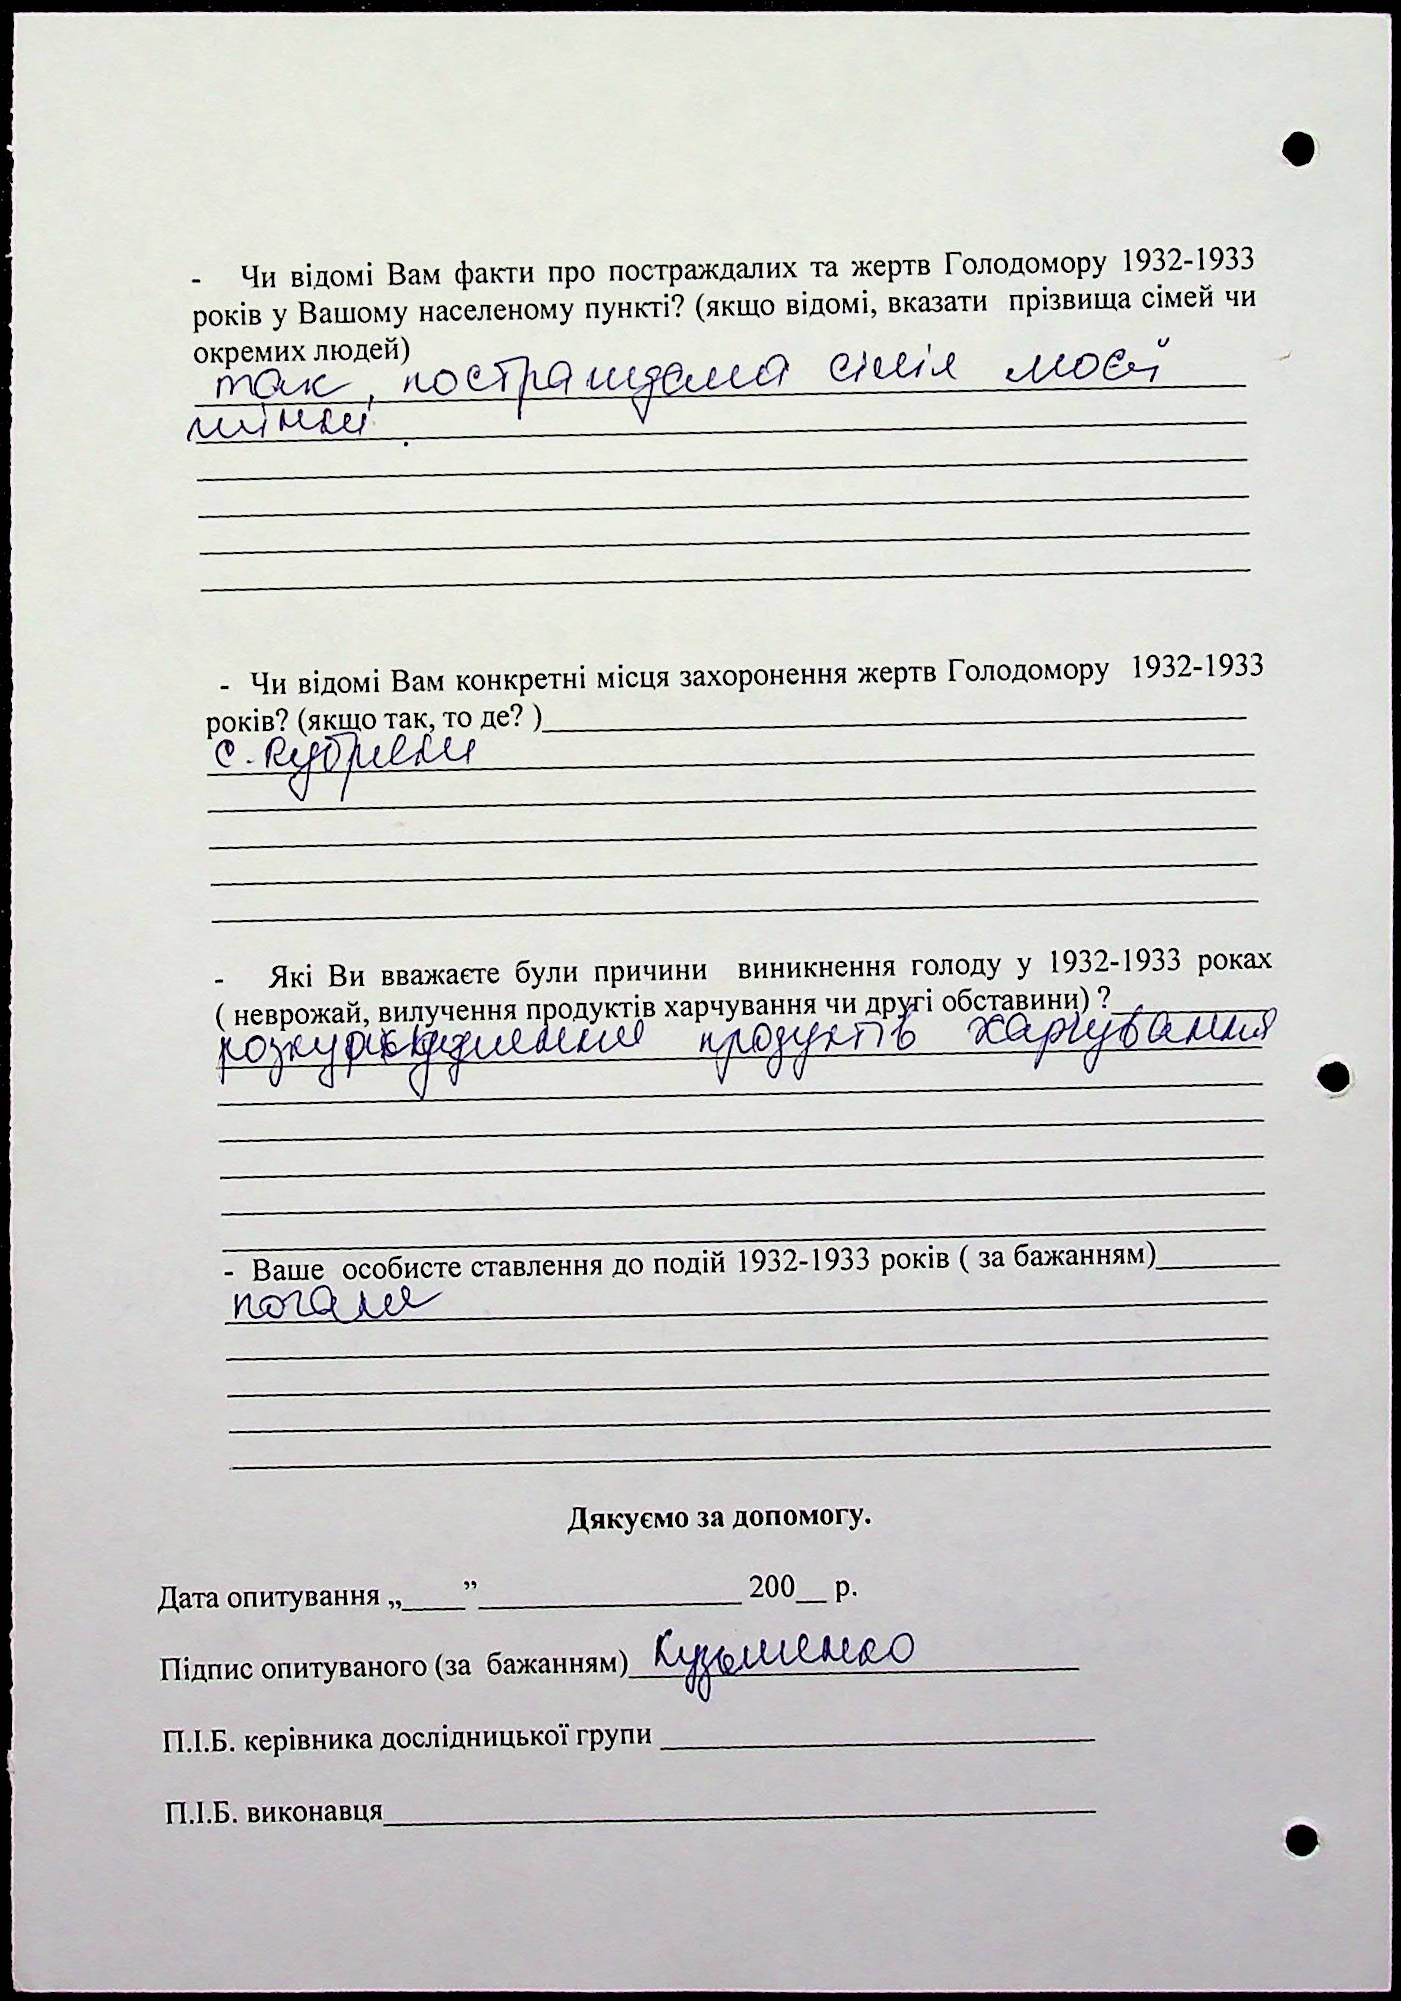 - Чи відомі Вам факти про постраждалих та жертв Голодомору 1932-1933
років у Вашому населеному пункті? (якщо відомі, вказати прізвища сімей чи
окремих людей)
так, постраждала сімія моєї
тітки.
- Чи відомі Вам конкретні місця захоронення жертв Голодомору 1932-1933
років? (якщо так, то де? )
с.
- Які Ви вважаєте були причини виникнення голоду у 1932-1933 роках
( неврожай, вилучення продуктів харчування чи другі обставини) ?
продуктів харчування
- Ваше особисте ставлення до подій 1932-1933 років ( за бажанням)
погане
Дякуємо за допомогу.
Дата опитування „____”_________________ 200__ р.
Підпис опитуваного (за бажанням) Кузьменко
П.І.Б. керівника дослідницької групи
П.І.Б. виконавця